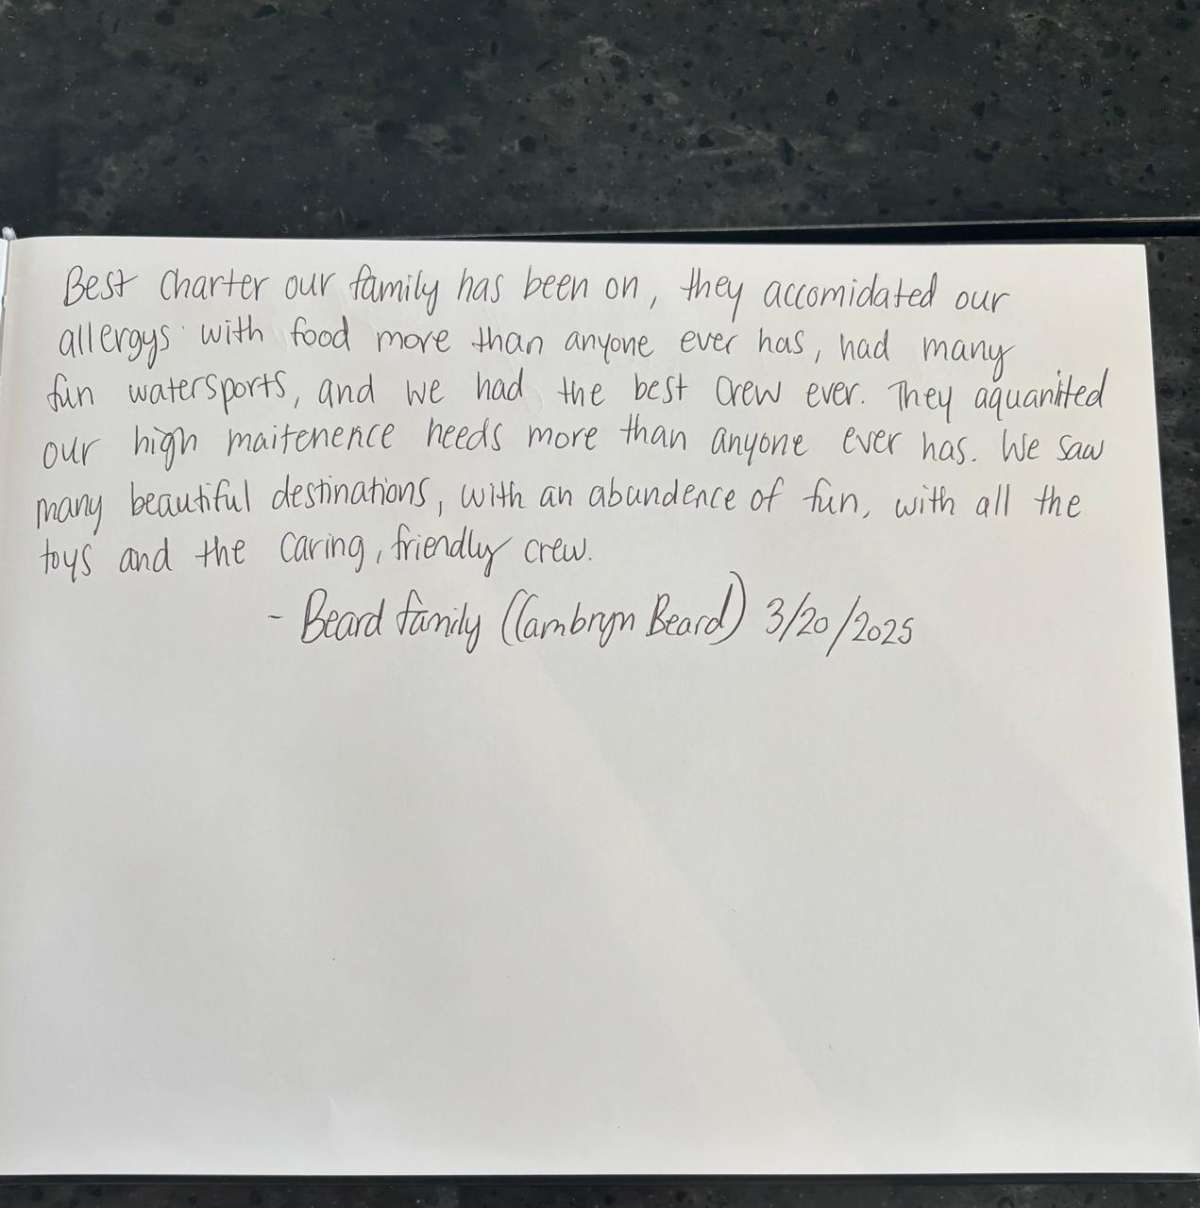 Best Charter our family has been on, they accomidated our
allergys with food more than anyone ever has, had many
fun watersports, and we had the best crew ever. They aquanited
our high maitenence needs more than anyone ever has. We saw
many beautiful destinations, with an abundence of fun, with all the
toys and the caring, friendly crew.
- Beard family (Cambryn Beard) 3/20/2025